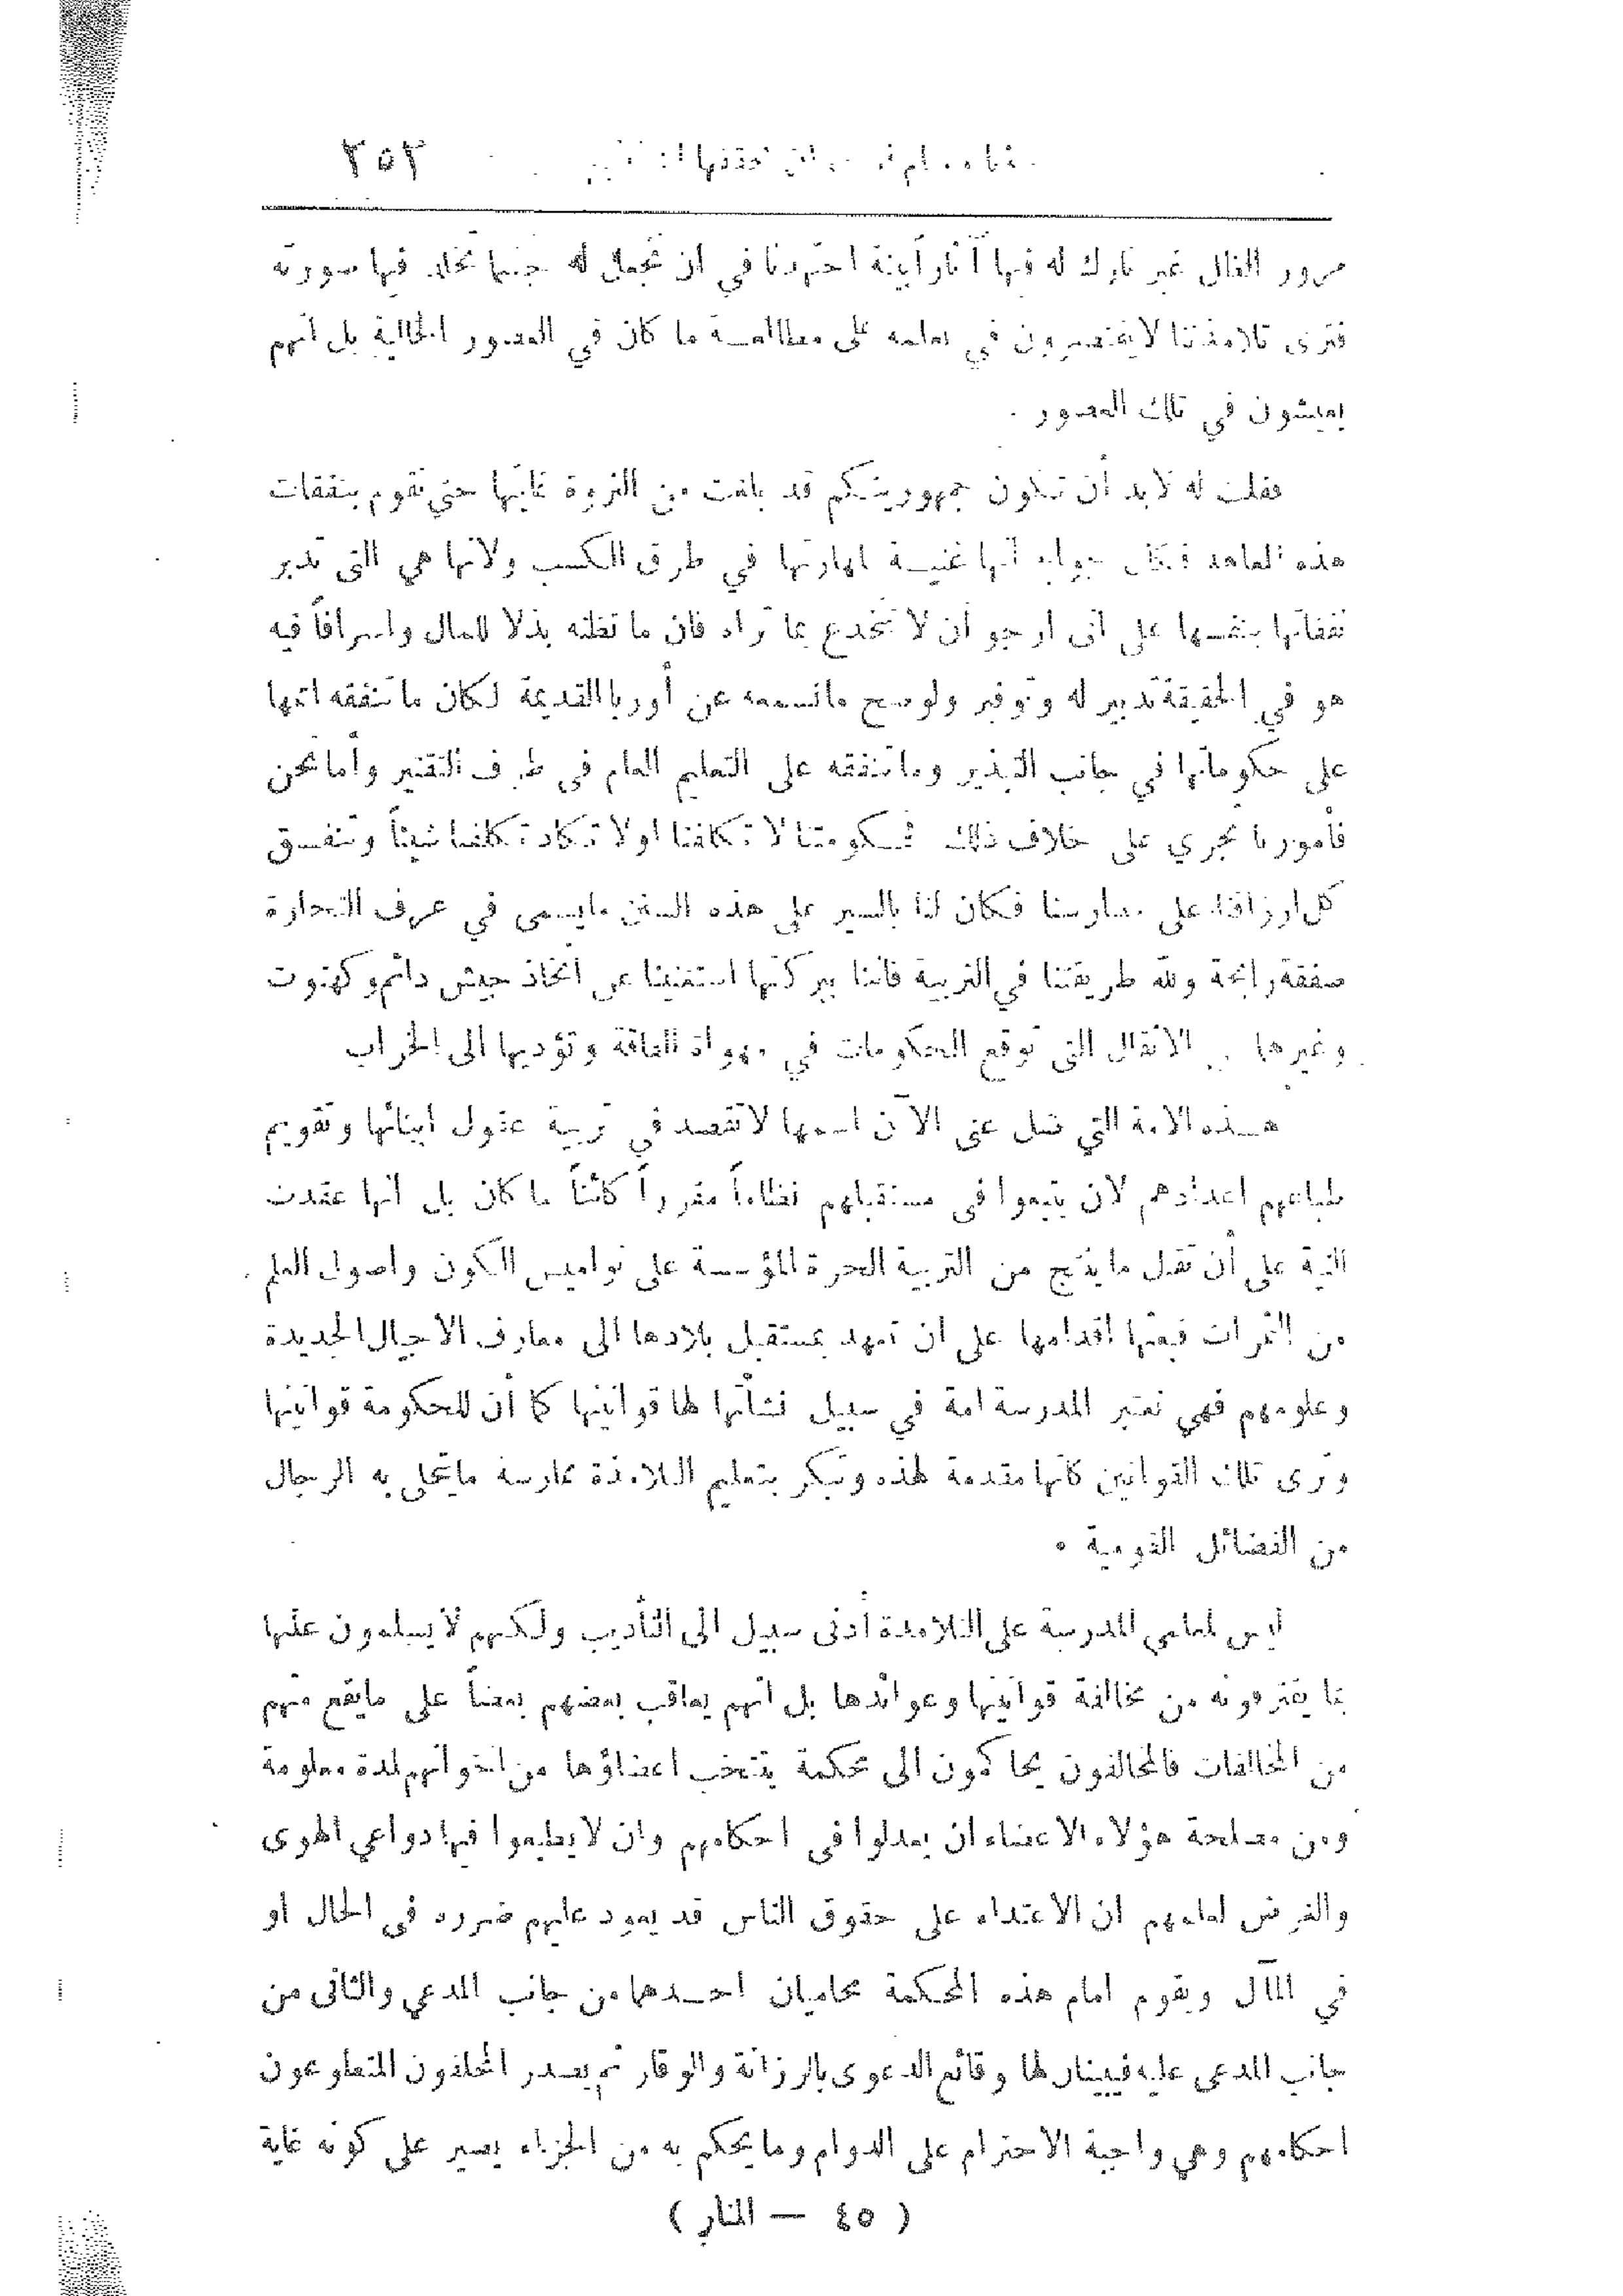 ٣٥٣
مرور الظل غير تارك له فيها آثاراً بينة اجتهدنا في ان نجعل له جسما تخلد فيها صورته
فترى تلامذتنا لا يقتصرون في تعلمه على مطالعة ما كان في العصور الخالية بل انهم
يعيشون في تلك العصور .
فقلت له لابد أن تكون جمهوريتكم قد بلغت من الثروة غايتها حتى تقوم بنفقات
هذه المعاهد فكان جوابه انها غنية لمهارتها في طرق الكسب ولانها هي التى تدبر
نفقاتها بنفسها على انى ارجو أن لا تنخدع بما تراه فان ما تظنه بذلا للمال واسرافاً فيه
هو في الحقيقة تدبير له وتوفير ولو صح مانسمعه عن أوربا القديمة لكان ما تنفقه اممها
على حكوماتها في جانب التبذير وما تنفقه على التعليم العام فى طرف التقتير وأما نحن
فأمورنا تجري على خلاف ذلك فحكومتنا لا تكلفنا او لا تكاد تكلفنا شيئاً وتنفق
كل ارزاقنا على مدارسنا فكان لنا بالسير على هذه السنن مايسمى في عرف التجارة
صفقة رابحة ولله طريقتنا في التربية فاننا ببركتها استغنينا عن اتخاذ جيش دائم وكهنوت
وغيرها من الاثقال التى توقع الحكومات في مهواة الفاقة وتؤديها الى الخراب
هذه الامة التي ضل عنى الآن اسمها لا تقصد في تربية عقول ابنائها وتقويم
طباعهم اعدادهم لان يتبعوا فى مستقبلهم نظاماً مقرراً كائناً ما كان بل انها عقدت
النية على أن تقبل ما ينتج من التربية الحرة المؤسسة على نواميس الكون واصول العلم
من الثمرات فيعثها اقدامها على ان تعهد بمستقبل بلادها الى معارف الاجيال الجديدة
وعلومهم فهي تعتبر المدرسة امة في سبيل نشأتها لها قوانينها كما أن للحكومة قوانينها
وترى تلك القوانين كانها مقدمة لهذه وتبكر بتعليم التلامذة ممارسة مايتحلى به الرجال
من الفضائل القومية .
ليس لمعلمي المدرسة على التلامذة أدنى سبيل الى التأديب ولكنهم لا يسلمون عليها
بما يقترفونه من مخالفة قوانينها وعوائدها بل انهم يعاقب بعضهم بعضاً على مايقع منهم
من المخالفات فالمخالفون يحاكمون الى محكمة ينتخب اعضاؤها من اخوانهم لمدة معلومة
ومن مصلحة هؤلاء الاعضاء ان يعدلوا فى احكامهم وان لا يطيعوا فيها دواعي الهوى
والغرض لعلمهم ان الاعتداء على حقوق الناس قد يعود عليهم ضرره فى الحال او
في المآل ويقوم امام هذه المحكمة محاميان احدهما من جانب المدعي والثانى من
جانب المدعى عليه فيبينان لها وقائع الدعوى بالرزانة والوقار ثم يصدر المحلفون المتطوعون
احكامهم وهي واجبة الاحترام على الدوام وما يحكم به من الجزاء يسير على كونه غاية
( ٤٥ — المنار )